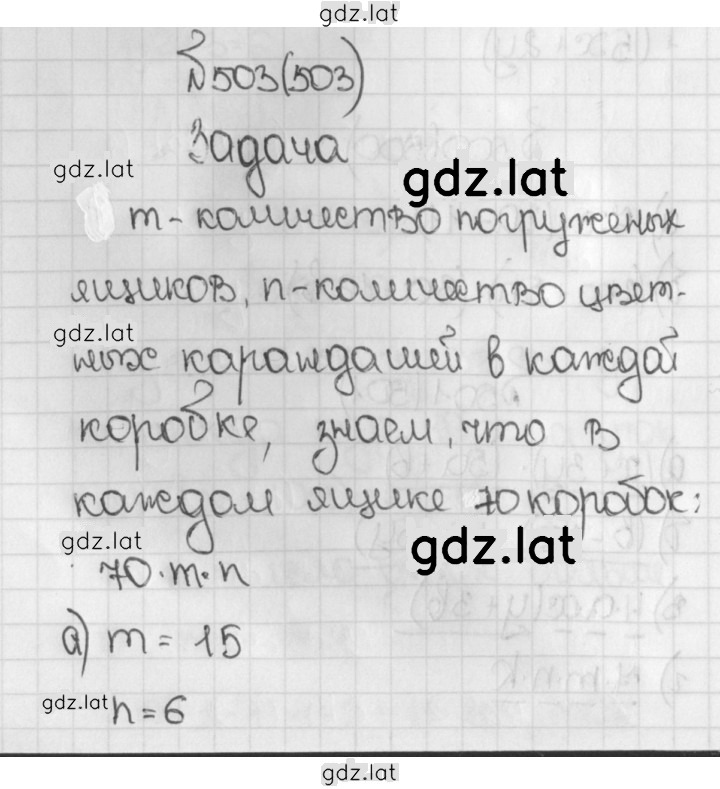 gdz.lat
№503(503)
Задача
gdz.lat
gdz.lat
m - количество погруженых
ящиков, n - количество цвет-
gdz.lat
ных карандашей в каждой
коробке, знаем, что в
каждом ящике 70 коробок:
gdz.lat
gdz.lat
70·m·n
а) m = 15
gdz.lat
n = 6
gdz.lat